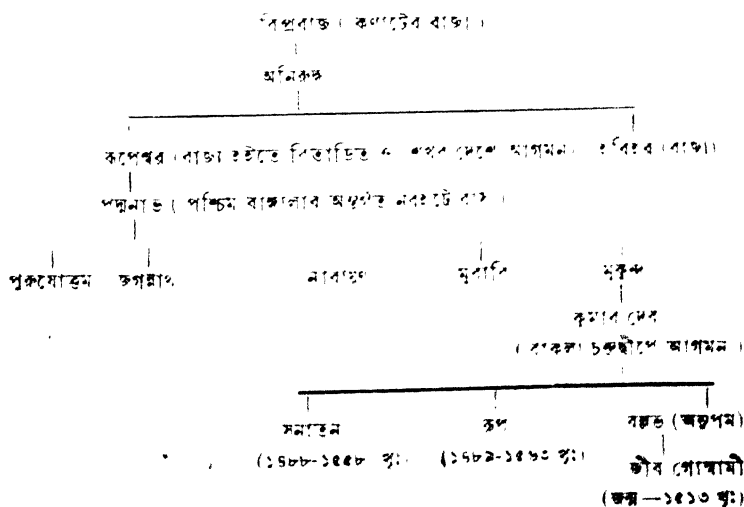 বিপ্ররাজ (কর্ণাটের রাজা)
অনিরুদ্ধ
রূপেশ্বর (রাজ্য হইতে বিতাড়িত ও শেখর দেশে আগমন) হরিহর (রাজা)
পদ্মনাভ (পশ্চিম বাঙ্গালার অন্তর্গত নবহট্টে বাস)
পুরুষোত্তম জগন্নাথ নারায়ণ মুরারি মুকুন্দ
কুমার দেব
(বাকলা চন্দ্রদ্বীপে আগমন)
সনাতন রূপ বল্লভ (অনুপম)
(১৪৮৮-১৫৫৮ খৃঃ) (১৪৮৯-১৫৬৩ খৃঃ) জীব গোস্বামী
(জন্ম—১৫১৩ খৃঃ)